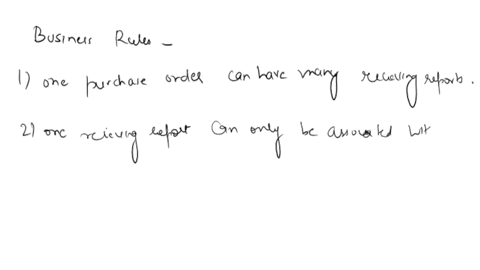 Business Rules -
1) one purchase order can have many receiving reports.
2) one recieving report can only be associated wit